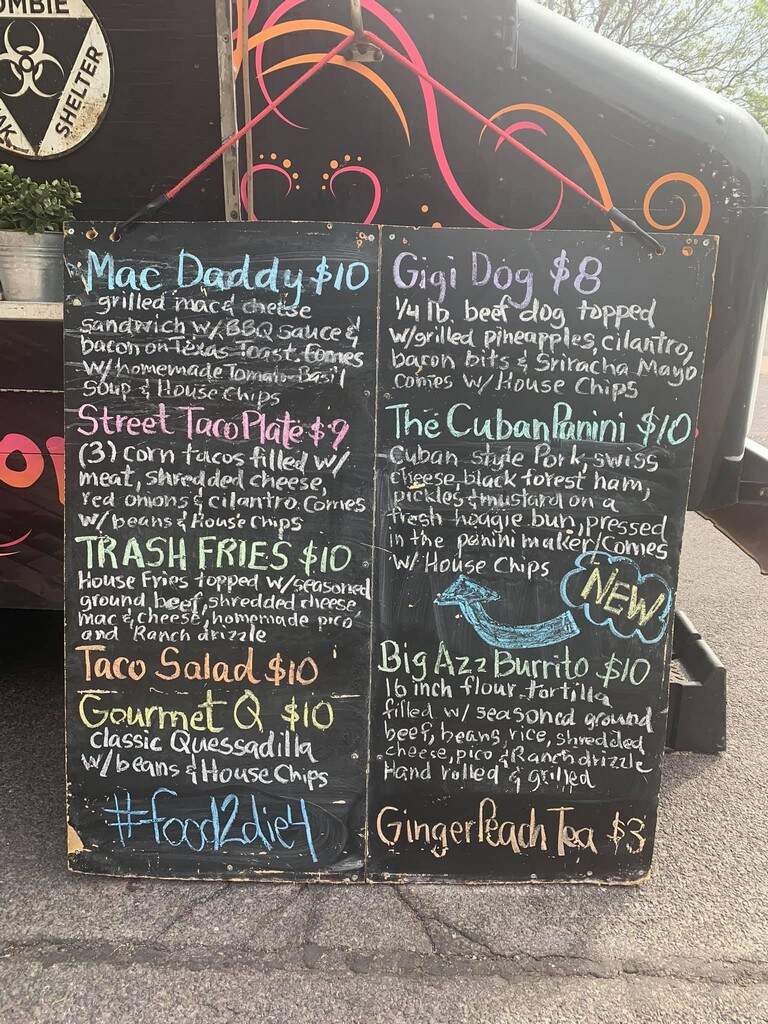 ZOMBIE
SHELTER
Mac Daddy $10
grilled mac & cheese
sandwich w/BBQ sauce &
bacon on Texas Toast. Comes
w/homemade Tomato-Basil
Soup & House Chips
Street Taco Plate $9
(3) corn tacos filled w/
meat, shredded cheese,
red onions & cilantro. Comes
w/beans & House Chips
TRASH FRIES $10
House Fries topped w/seasoned
ground beef, shredded cheese,
mac & cheese, homemade pico
and Ranch drizzle
Taco Salad $10
Gourmet Q $10
classic Quessadilla
w/beans & House Chips
#food2die4
Gigi Dog $8
1/4 lb. beef dog topped
w/grilled pineapples, cilantro,
bacon bits & Sriracha Mayo
comes w/ House Chips
The Cuban Panini $10
Cuban style Pork, swiss
cheese, black forest ham,
pickles & mustard on a
fresh hoagie bun, pressed
in the panini maker. Comes
w/ House Chips
NEW
Big Azz Burrito $10
16 inch flour tortilla
filled w/ seasoned ground
beef, beans, rice, shredded
cheese, pico & Ranch drizzle
Hand rolled & grilled
Ginger Peach Tea $3